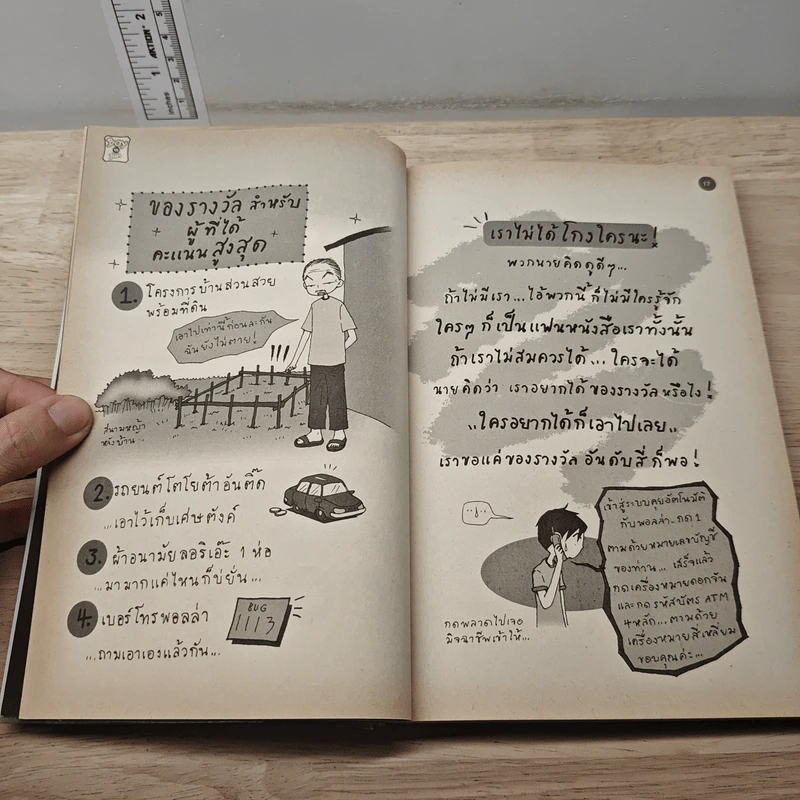 ของรางวัล สำหรับ
ผู้ที่ได้
คะแนนสูงสุด
1. โครงการบ้านสวนสวย
พร้อมที่ดิน
เอาไปเท่านี้ก่อนละกัน
ฉันยังไม่ตาย!
!!!
สนามหญ้า
หลังบ้าน
2. รถยนต์โตโยต้าอันติ๊ด
...เอาไว้เก็บเศษตังค์
3. ผ้าอนามัยลอริเอ๊ะ 1 ห่อ
...มามากแค่ไหนก็บ่ยั่น...
4. เบอร์โทรพอลล่า
...ถามเอาเองแล้วกัน...
BUG
1113
17
เราไม่ได้โกงใครนะ!
พวกนายคิดดูดีๆ...
ถ้าไม่มีเรา...ไอ้พวกนี้ก็ไม่มีใครรู้จัก
ใครๆ ก็เป็นแฟนหนังสือเราทั้งนั้น
ถ้าเราไม่สมควรได้... ใครจะได้
นายคิดว่า เราอยากได้ของรางวัลหรือไง!
..ใครอยากได้ก็เอาไปเลย..
เราขอแค่ของรางวัล อันดับสี่ก็พอ!
เข้าสู่ระบบคุยอัตโนมัติ
กับพอลล่า..กด 1
ตามด้วยหมายเลขบัญชี
ของท่าน... เสร็จแล้ว
กดเครื่องหมายดอกจัน
และกดรหัสบัตร ATM
4หลัก...ตามด้วย
เครื่องหมายสี่เหลี่ยม
ขอบคุณค่ะ...
กดพลาดไปเจอ
มิจฉาชีพเข้าให้...
AKTION
inches
1
2
1
2
3
4
5